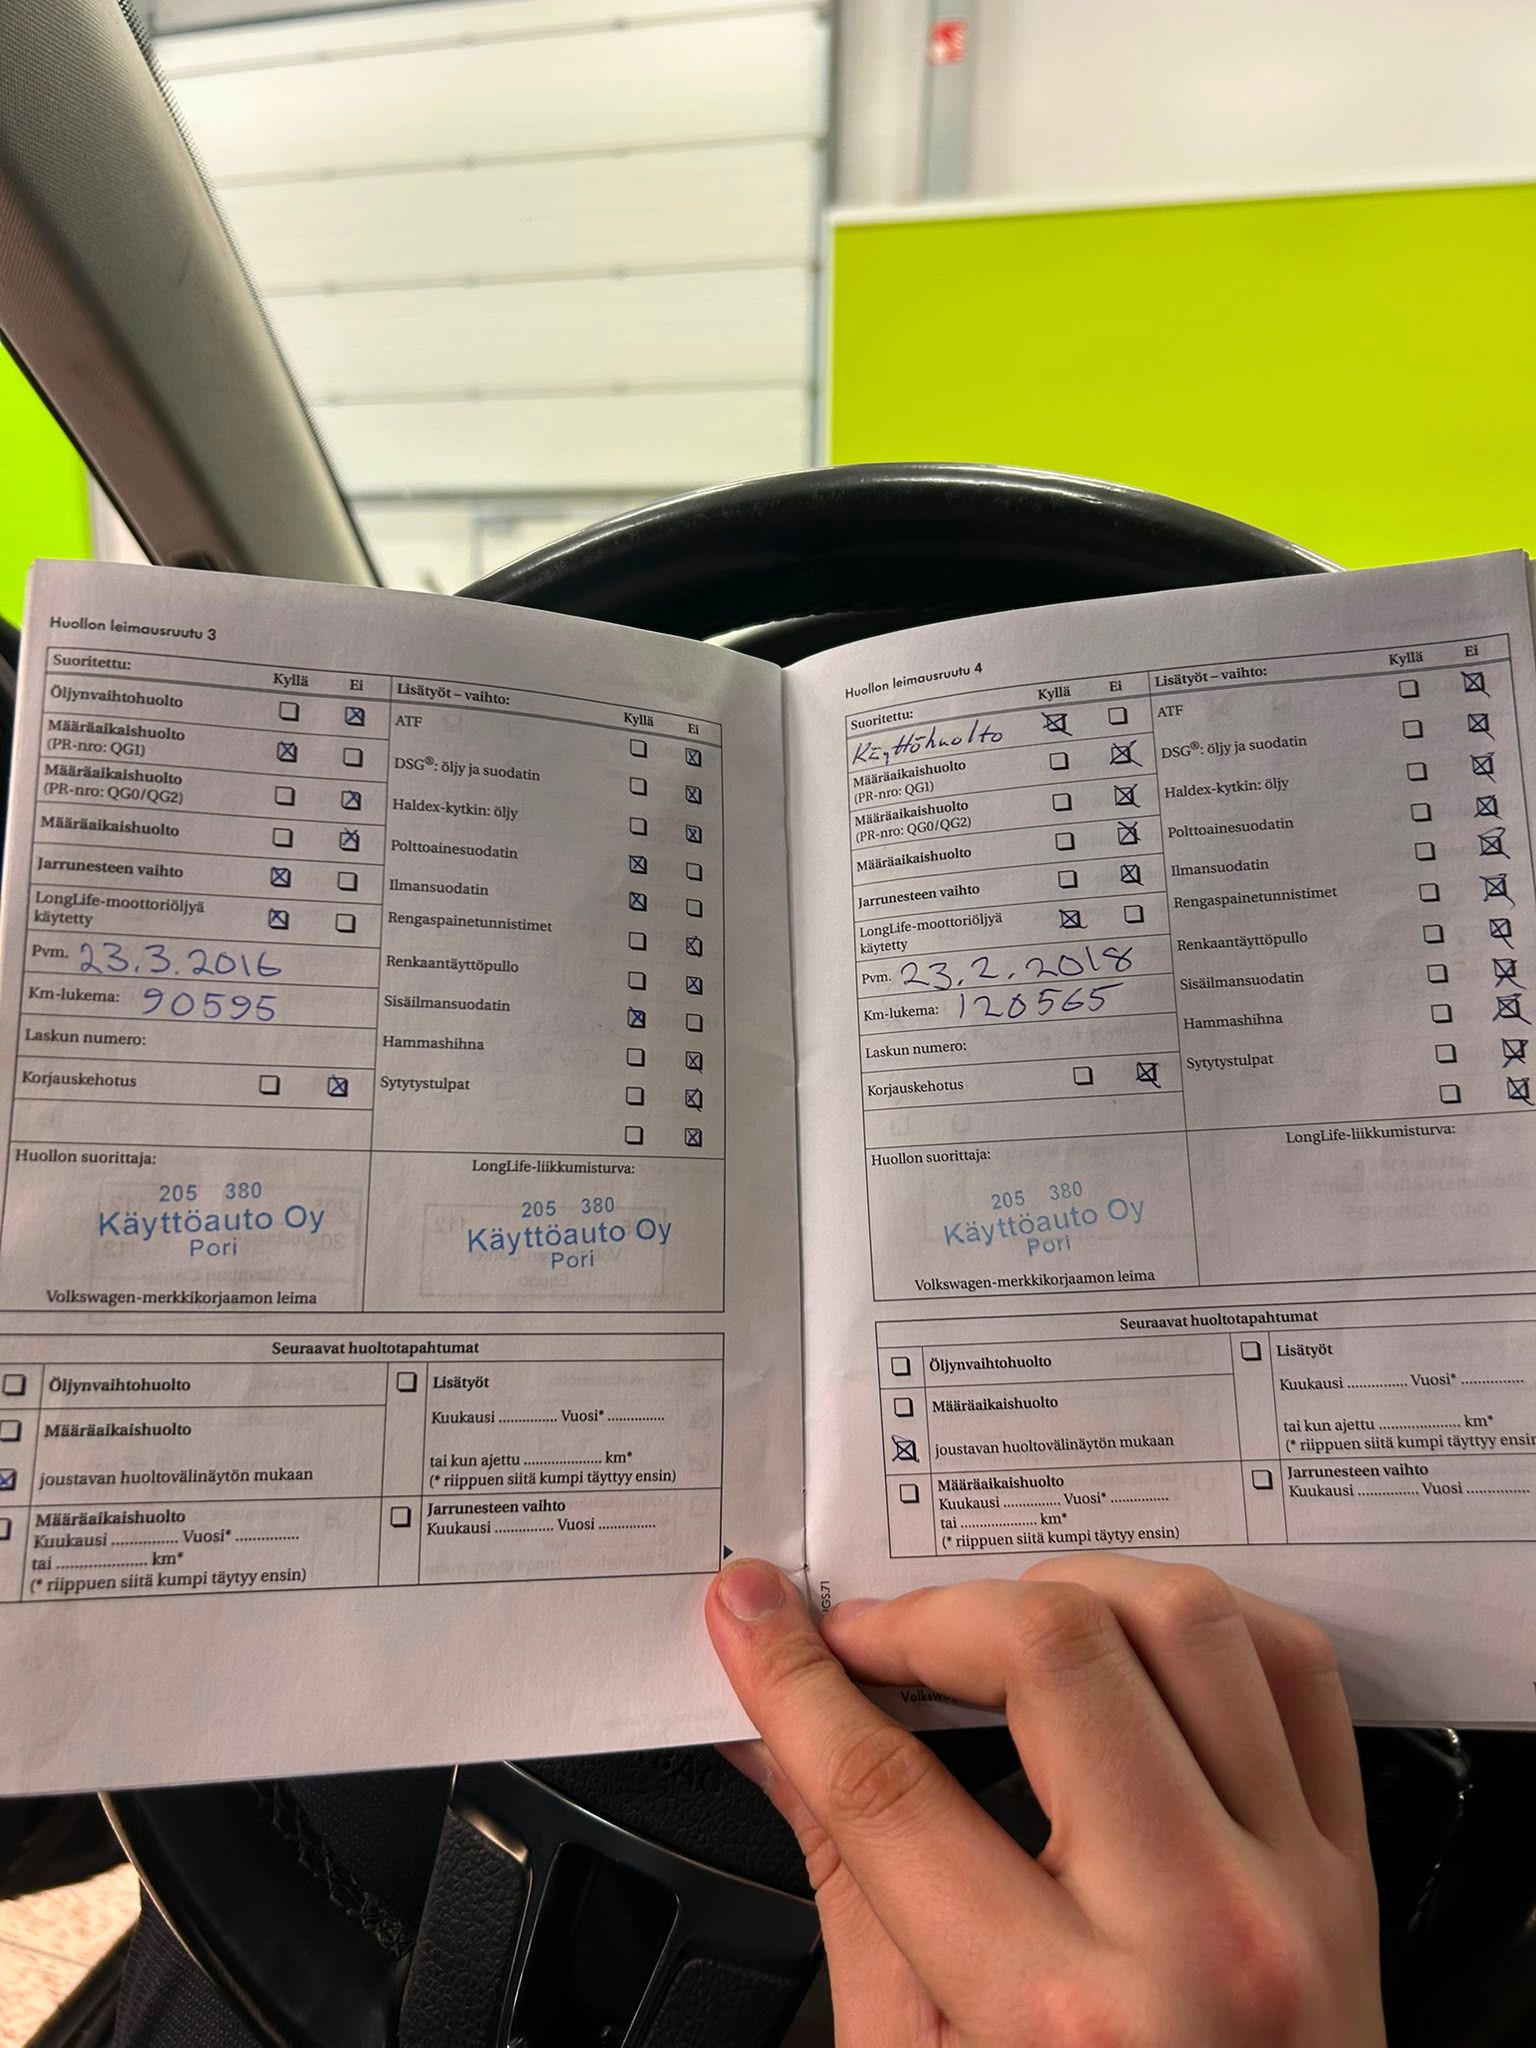 Huollon leimausruutu 3
Suoritettu:
Kyllä Ei
Öljynvaihtohuolto
Määräaikaishuolto
(PR-nro: QG1)
Määräaikaishuolto
(PR-nro: QG0/QG2)
Määräaikaishuolto
Jarrunesteen vaihto
LongLife-moottoriöljyä
käytetty
Pvm. 23.3.2016
Km-lukema: 90595
Laskun numero:
Korjauskehotus
Lisätyöt – vaihto:
Kyllä Ei
ATF
DSG®: öljy ja suodatin
Haldex-kytkin: öljy
Polttoainesuodatin
Ilmansuodatin
Rengaspainetunnistimet
Renkaantäyttöpullo
Sisäilmansuodatin
Hammashihna
Sytytystulpat
Huollon suorittaja:
205 380
Käyttöauto Oy
Pori
Volkswagen-merkkikorjaamon leima
LongLife-liikkumisturva:
205 380
Käyttöauto Oy
Pori
Seuraavat huoltotapahtumat
Öljynvaihtohuolto
Määräaikaishuolto
joustavan huoltovälinäytön mukaan
Määräaikaishuolto
Kuukausi .............. Vuosi* ..............
tai .................... km*
(* riippuen siitä kumpi täytyy ensin)
Lisätyöt
Kuukausi .............. Vuosi* ..............
tai kun ajettu .................... km*
(* riippuen siitä kumpi täyttyy ensin)
Jarrunesteen vaihto
Kuukausi .............. Vuosi ..............
Huollon leimausruutu 4
Suoritettu:
Kyllä Ei
Käyttöhuolto
Määräaikaishuolto
(PR-nro: QG1)
Määräaikaishuolto
(PR-nro: QG0/QG2)
Määräaikaishuolto
Jarrunesteen vaihto
LongLife-moottoriöljyä
käytetty
Pvm. 23.2.2018
Km-lukema: 120565
Laskun numero:
Korjauskehotus
Lisätyöt – vaihto:
Kyllä Ei
ATF
DSG®: öljy ja suodatin
Haldex-kytkin: öljy
Polttoainesuodatin
Ilmansuodatin
Rengaspainetunnistimet
Renkaantäyttöpullo
Sisäilmansuodatin
Hammashihna
Sytytystulpat
Huollon suorittaja:
205 380
Käyttöauto Oy
Pori
Volkswagen-merkkikorjaamon leima
LongLife-liikkumisturva:
Seuraavat huoltotapahtumat
Öljynvaihtohuolto
Määräaikaishuolto
joustavan huoltovälinäytön mukaan
Määräaikaishuolto
Kuukausi .............. Vuosi* ..............
tai .................... km*
(* riippuen siitä kumpi täytyy ensin)
Lisätyöt
Kuukausi .............. Vuosi* ..............
tai kun ajettu .................... km*
(* riippuen siitä kumpi täyttyy ensin
Jarrunesteen vaihto
Kuukausi .............. Vuosi ..............